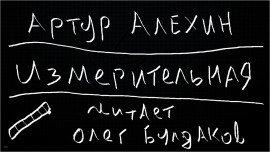 Артур Алехин
Измерительная
читает
Олег Булдаков